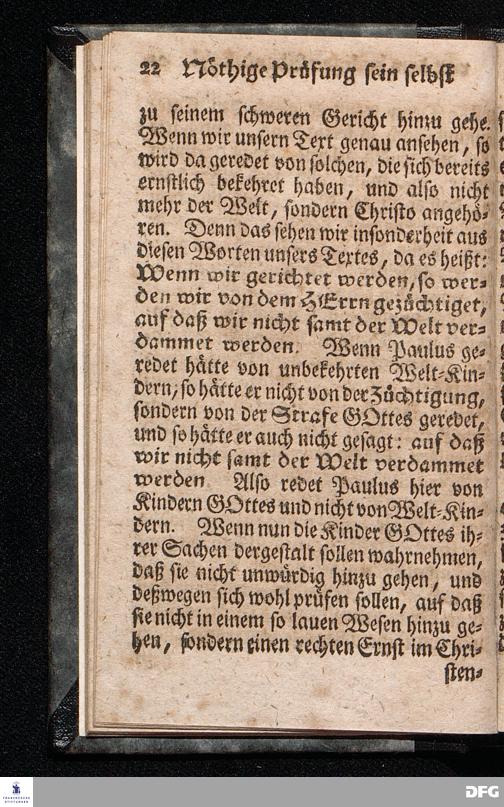 22 Nöthige Prüfung sein selbst
zu seinem schweren Gericht hinzu gehe.
Wenn wir unsern Text genau ansehen, so
wird da geredet von solchen, die sich bereits
ernstlich bekehret haben, und also nicht
mehr der Welt, sondern Christo angehö-
ren. Denn das sehen wir insonderheit aus
diesen Worten unsers Textes, da es heißt:
Wenn wir gerichtet werden, so wer-
den wir von dem HErrn gezüchtiget,
auf daß wir nicht samt der Welt ver-
dammet werden. Wenn Paulus ge-
redet hätte von unbekehrten Welt-Kin-
dern, so hätte er nicht von der Züchtigung,
sondern von der Strafe GOttes geredet,
und so hätte er auch nicht gesagt: auf daß
wir nicht samt der Welt verdammet
werden. Also redet Paulus hier von
Kindern GOttes und nicht von Welt-Kin-
dern. Wenn nun die Kinder GOttes ih-
rer Sachen dergestalt sollen wahrnehmen,
daß sie nicht unwürdig hinzu gehen, und
deßwegen sich wohl prüfen sollen, auf daß
sie nicht in einem so lauen Wesen hinzu ge-
hen, sondern einen rechten Ernst im Chri-
sten-
FRANCKESCHE
STIFTUNGEN
DFG